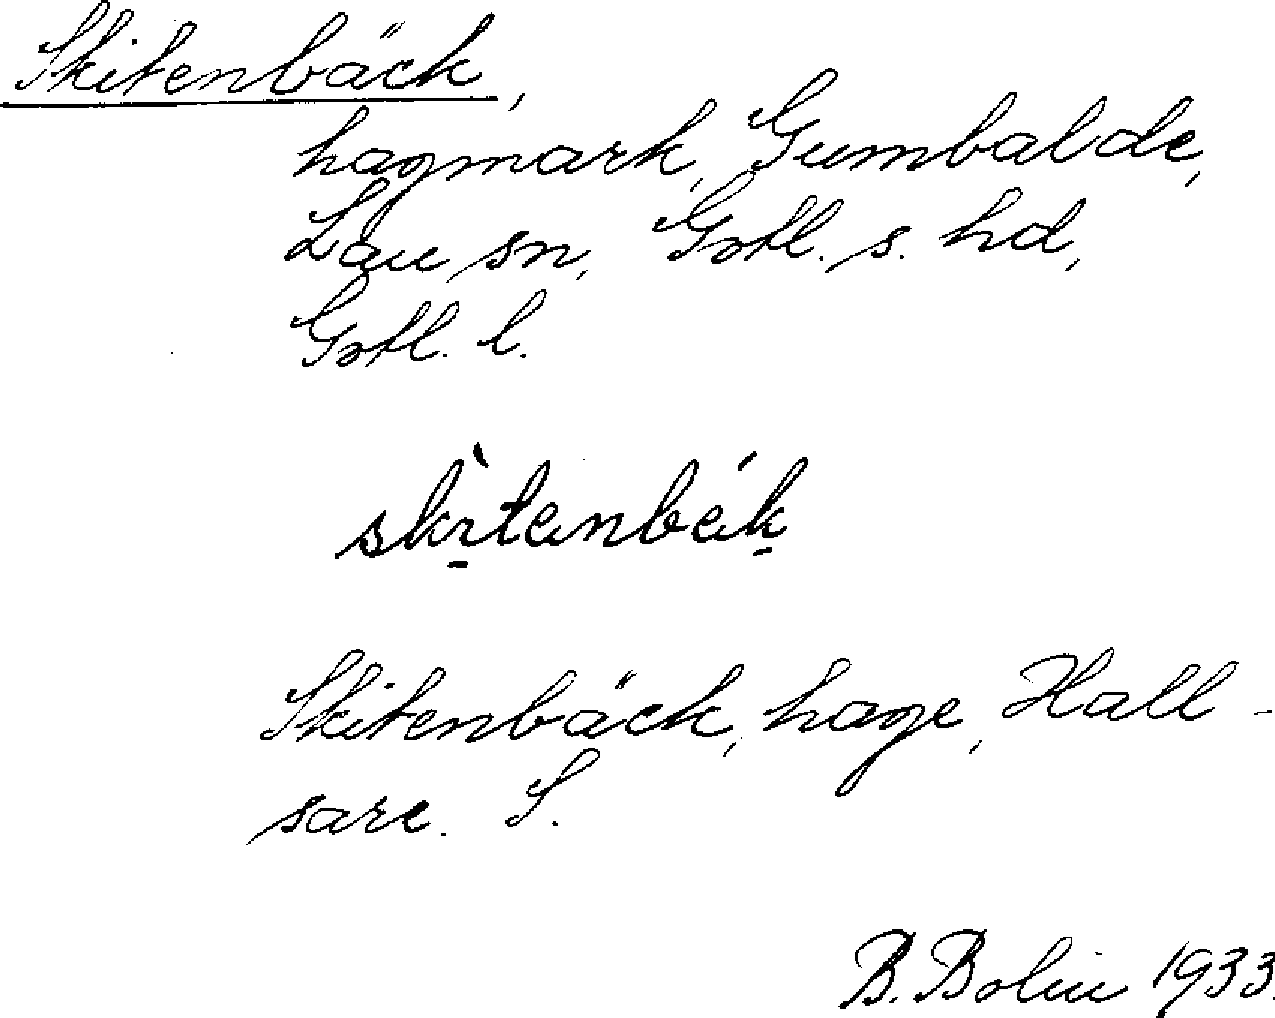 Skitenbäck,
hagmark, Gumbalde,
Lau sn, Gotl. s. hd,
Gotl. l.
skìtenbék
Skitenbäck, hage, Hall-
sare. S.
B. Bolin 1933.